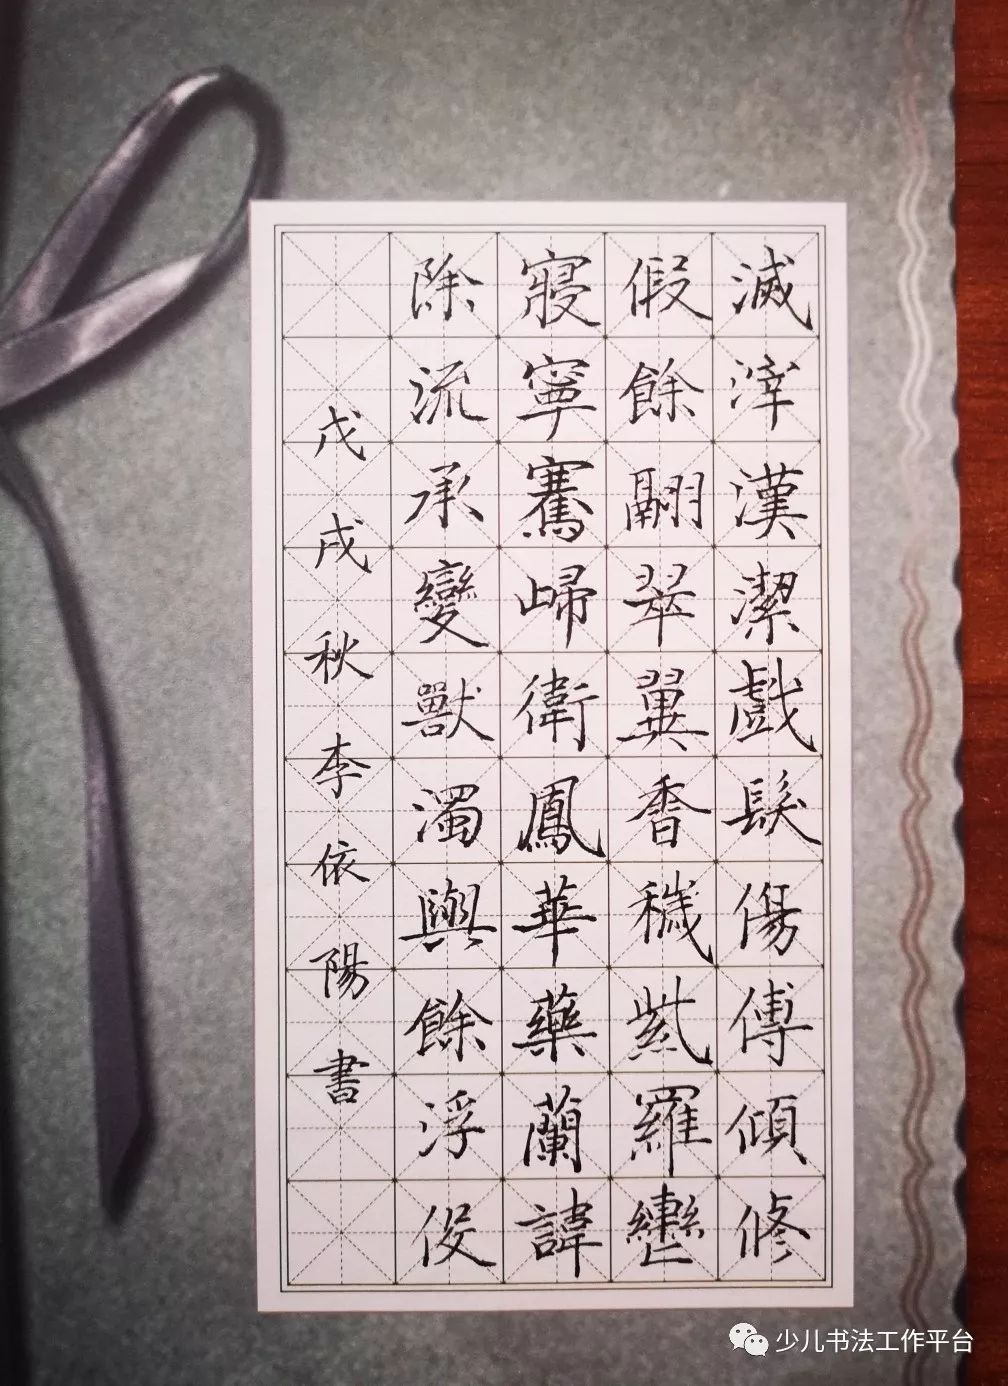 滅滓漢潔戲髮傷傅傾修
假餘翮翠翼香穢紫羅
寢寧騫歸衛鳳華藥蘭諱
除流承變獸濁與餘浮伇
戊戌秋李依陽書
少儿书法工作平台